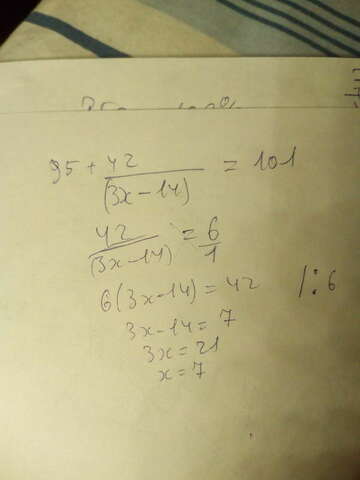 95 + 42/(3x-14) = 101
42/(3x-14) = 6/1
6(3x-14) = 42 /:6
3x-14 = 7
3x = 21
x = 7